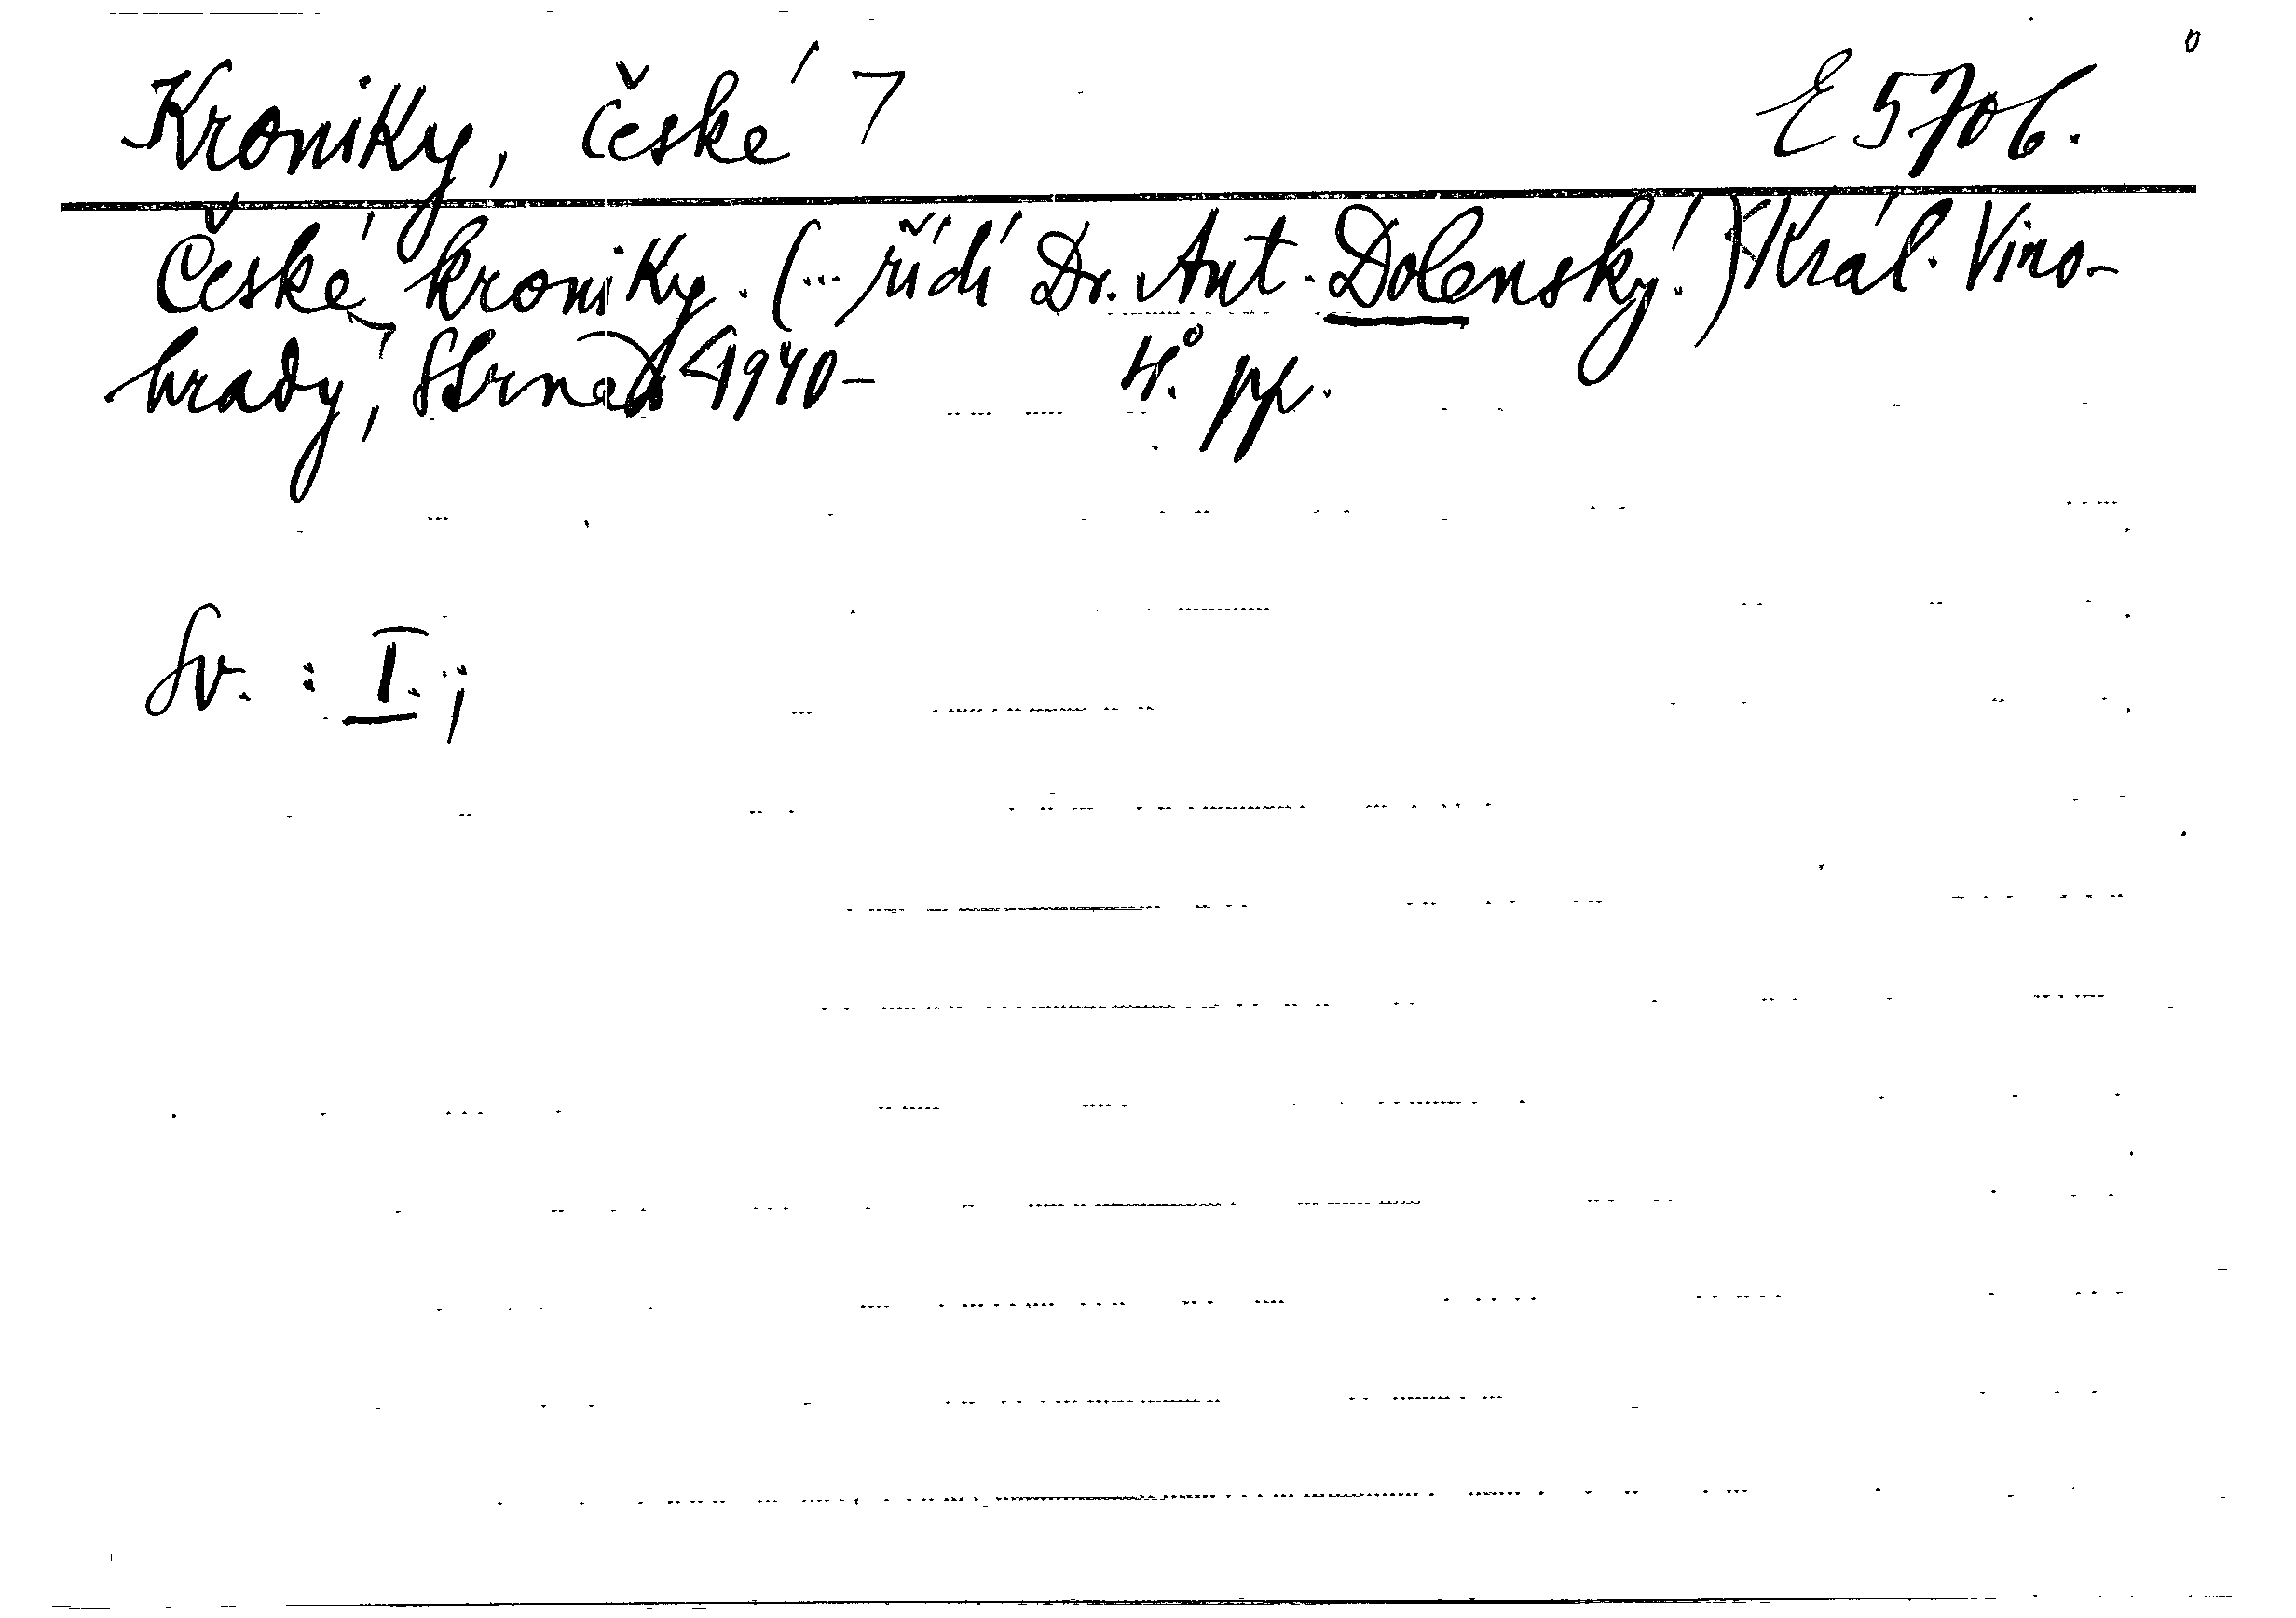 Kroniky, české 7 E 5706.
České kroniky. (... řídí Dr. Ant. Dolenský.) Král. Vino-
hrady, Strnad 1940- 4° pp.
Sv. : I. ;